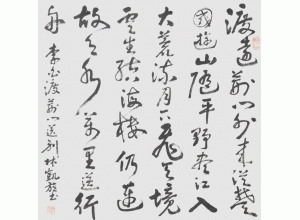 渡遠荆门外来從楚
國遊山隨平野尽江入
大荒流月下飛天镜
雲生结海楼仍连
故乡水万里送行
舟 李白渡荆门送别 林凯书